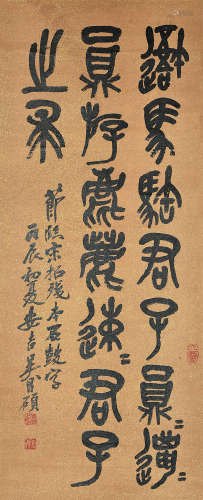 䢒馬𩣡君子員邋〻
員斿麀鹿速〻君子
之求
節臨宋拓殘本石鼓字
丙辰初夏安吉吳昌碩